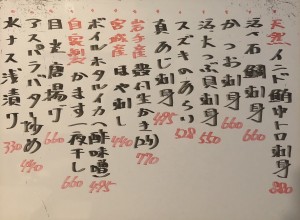 天然インド鮪中トロ刺身 880
活〆石鯛刺身 660
かつお刺身 660
活大つぶ貝刺身 550
スズキのあらい 528
真あじ刺身 495
岩手産殻付生かき(1ヶ) 770
宮城産ほや刺し 440
ボイルホタルイカ酢味噌 495
自家製かます一夜干し 660
目光唐揚げ 660
アスパラバター炒め 440
水ナス浅漬け 330